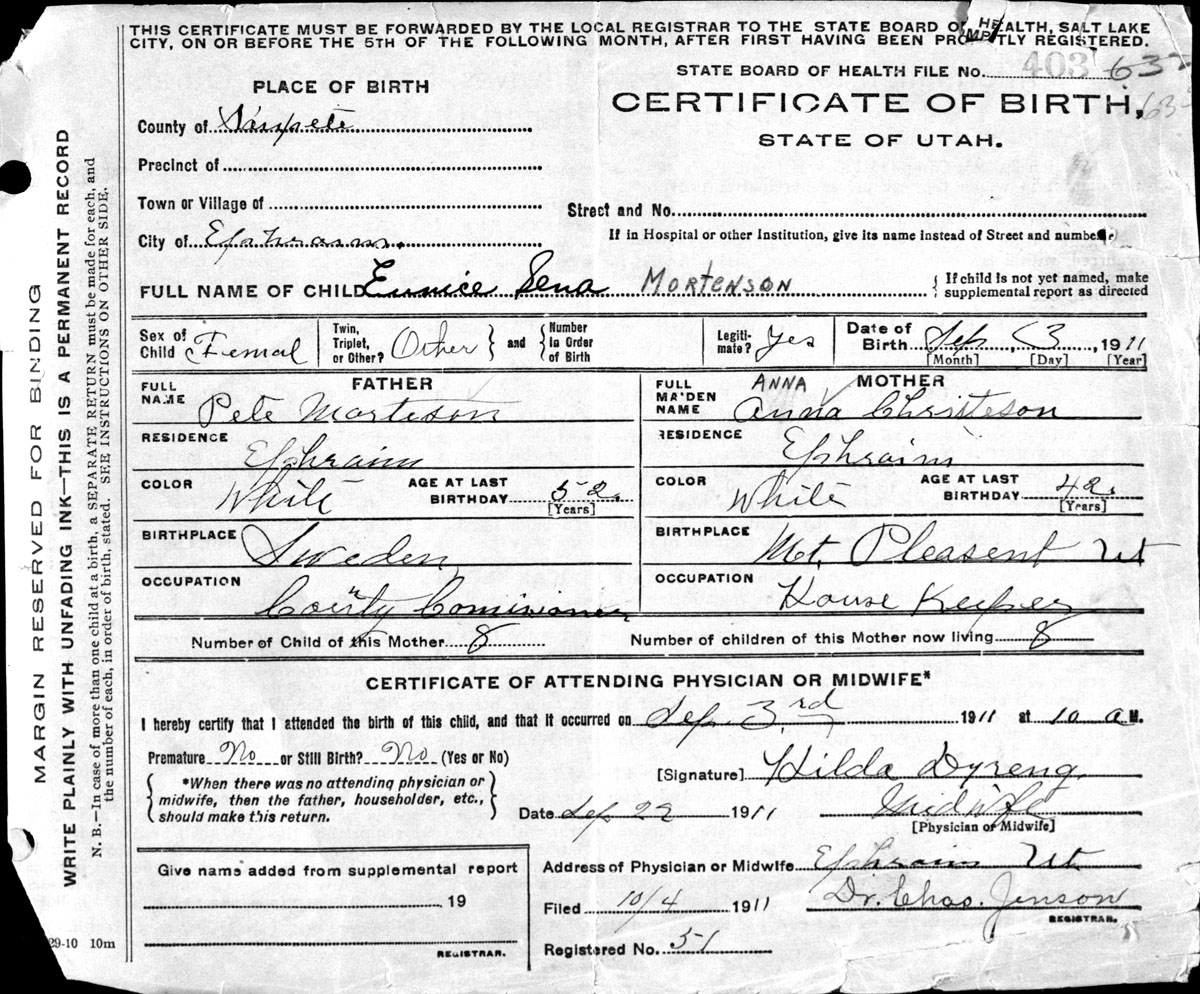 THIS CERTIFICATE MUST BE FORWARDED BY THE LOCAL REGISTRAR TO THE STATE BOARD OF HEALTH, SALT LAKE
CITY, ON OR BEFORE THE 5TH OF THE FOLLOWING MONTH, AFTER FIRST HAVING BEEN PROMPTLY REGISTERED.
STATE BOARD OF HEALTH FILE No. 403
PLACE OF BIRTH
CERTIFICATE OF BIRTH,
STATE OF UTAH.
County of Sanpete
Precinct of
Town or Village of
Street and No.
City of Ephraim.
If in Hospital or other Institution, give its name instead of Street and number.)
FULL NAME OF CHILD Eunice Sena MORTENSON
{ If child is not yet named, make
supplemental report as directed
Sex of Child Femal
Twin, Triplet, or Other? Other } and { Number in Order of Birth
Legiti-mate? Yes
Date of Birth Sep 3, 1911
[Month] [Day] [Year]
FATHER
FULL NAME Pete Morteson
RESIDENCE Ephraim
COLOR White
AGE AT LAST BIRTHDAY 52
[Years]
BIRTHPLACE Sweden
OCCUPATION County Comisioner
ANNA MOTHER
FULL MAIDEN NAME Anna Christeson
RESIDENCE Ephraim
COLOR White
AGE AT LAST BIRTHDAY 42
[Years]
BIRTHPLACE Mt. Pleasent Ut
OCCUPATION House Keeper
Number of Child of this Mother 8
Number of children of this Mother now living 8
CERTIFICATE OF ATTENDING PHYSICIAN OR MIDWIFE*
I hereby certify that I attended the birth of this child, and that it occurred on Sep. 3rd 1911 at 10 a M.
Premature No or Still Birth? No (Yes or No)
{ *When there was no attending physician or
midwife, then the father, householder, etc.,
should make this return. }
[Signature] Hilda Dyreng
Date Sep 22 1911 Midwife
[Physician or Midwife]
Address of Physician or Midwife Ephraim Ut
Filed 10/4 1911 Dr. Chas. Jenson
REGISTRAR.
Registered No. 51
Give name added from supplemental report
19
REGISTRAR.
29-10 10m
MARGIN RESERVED FOR BINDING
WRITE PLAINLY WITH UNFADING INK—THIS IS A PERMANENT RECORD
N. B.—In case of more than one child at a birth, a SEPARATE RETURN must be made for each, and
the number of each, in order of birth, stated. SEE INSTRUCTIONS ON OTHER SIDE.